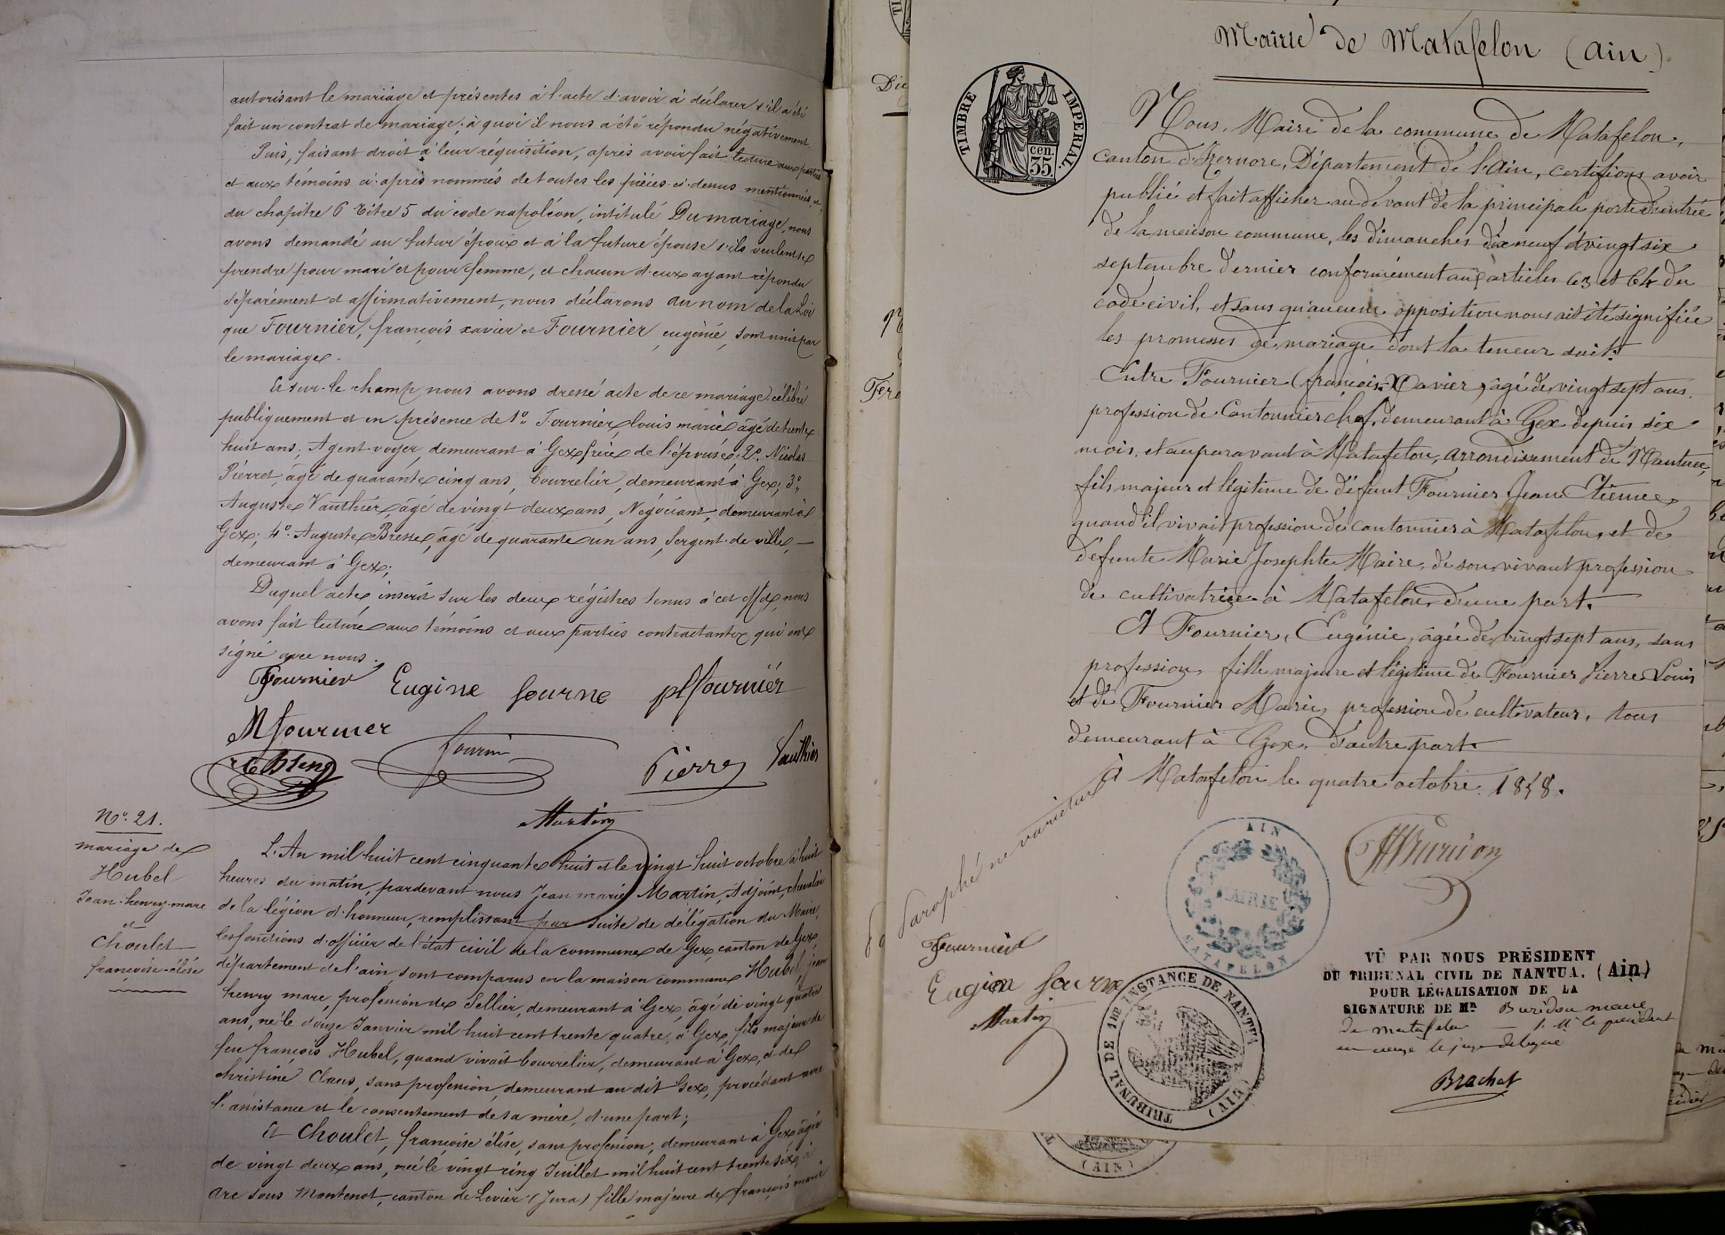 autorisant le mariage et présentes à l'acte d'avoir à déclarer s'il a été
fait un contrat de mariage, à quoi il nous a été répondu négativement
Puis, faisant droit à leur réquisition, après avoir fait lecture aux parties
et aux témoins ci-après nommés de toutes les pièces ci-dessus mentionnées, et
du chapitre 6 titre 5 du code napoléon, intitulé Du mariage, nous
avons demandé au futur époux et à la future épouse s'ils veulent se
prendre pour mari et pour femme, et chacun d'eux ayant répondu
séparément et affirmativement, nous déclarons au nom de la Loi
que Fournier, françois xavier et Fournier, eugénie, sont unis par
le mariage.
Et sur-le champ nous avons dressé acte de ce mariage célébré
publiquement et en présence de 1º Fournier, louis marie âgé de trente
huit ans, Agent voyer demeurant à Gex frère de l'épouse; 2º Nicolas
Pierret, âgé de quarante cinq ans, bourrelier, demeurant à Gex; 3º
Auguste Vauthier âgé de vingt deux ans, Négociant, demeurant à
Gex; 4º Auguste Bresse, âgé de quarante un ans, Sergent de ville, —
demeurant à Gex;
Duquel acte, inscrit sur les deux régistres tenus à cet effet, nous
avons fait lecture aux témoins et aux parties contractantes, qui ont
signé avec nous.
Fournier Eugine fourne pl fournier
M fournier
fournier Pierre Vauthier
Martin
Nº 21.
mariage de
Hubel
Jean-henry-marc
et
Choulet
francoise-élise
L'An mil huit cent cinquante huit et le vingt huit octobre à huit
heures du matin, pardevant nous Jean marie Martin, Adjoint, chevalier
de la légion d'honneur, remplissant par suite de délégation du Maire,
les fonctions d'officier de l'état civil de la commune de Gex, canton de Gex,
département de l'ain sont comparus en la maison commune Hubel, jean
henry marc, profession de Sellier, demeurant à Gex, âgé de vingt quatre
ans, né le douze Janvier mil huit cent trente quatre, à Gex, fils majeur de
feu françois Hubel, quand vivait bourrelier, demeurant à Gex, et de
christine Claus, sans profession, demeurant au dit Gex, procédant avec
l'assistance et le consentement de sa mère, d'une part;
Et Choulet, françoise élise, sans profession, demeurant à Gex, âgée
de vingt deux ans, née le vingt cinq Juillet mil huit cent trente six, à
arc sous Montenot, canton de Levier (Jura) fille majeure de françois marie
Mairie de Matafelon (ain).
TIMBRE IMPERIAL
cen. 35
Nous, Maire de la commune de Matafelon,
canton d'Izernore, Département de l'Ain, certifions avoir
publié et fait afficher au devant de la principale porte d'entrée
de la maison commune, les dimanches dix neuf & vingt six
septembre dernier conformément aux articles 63 et 64 du
code civil, et sans qu'aucune opposition nous ait été signifiée
les promesses de mariage dont la teneur suit:
Entre Fournier (françois Xavier, âgé de vingt sept ans.
profession de Cantonnier chef, demeurant à Gex depuis six
mois, et auparavant à Matafelon, arrondissement de Nantua,
fils majeur et légitime de défunt Fournier Jean Etienne,
quand il vivait profession de cantonnier à Matafelon, et de
défunte Marie Josephte Maire, de son vivant profession
de cultivatrice à Matafelon, d'une part.
Et Fournier, Eugénie, âgée de vingt sept ans, sans
profession, fille majeure et légitime de Fournier Pierre Louis
et de Fournier Marie, profession de cultivateur, tous
demeurant à Gex, d'autre part.
à Matafelon le quatre octobre 1858.
Paraphé ne varietur
AIN
MAIRIE
MATAFELON
Fournier
Eugine fourne
Martin
TRIBUNAL DE 1ère INSTANCE DE NANTUA (AIN)
VÛ PAR NOUS PRÉSIDENT
DU TRIBUNAL CIVIL DE NANTUA. (Ain)
POUR LÉGALISATION DE LA
SIGNATURE DE MR Buridon maire
de matafelon — p. Mr le président
Brachet
(AIN)